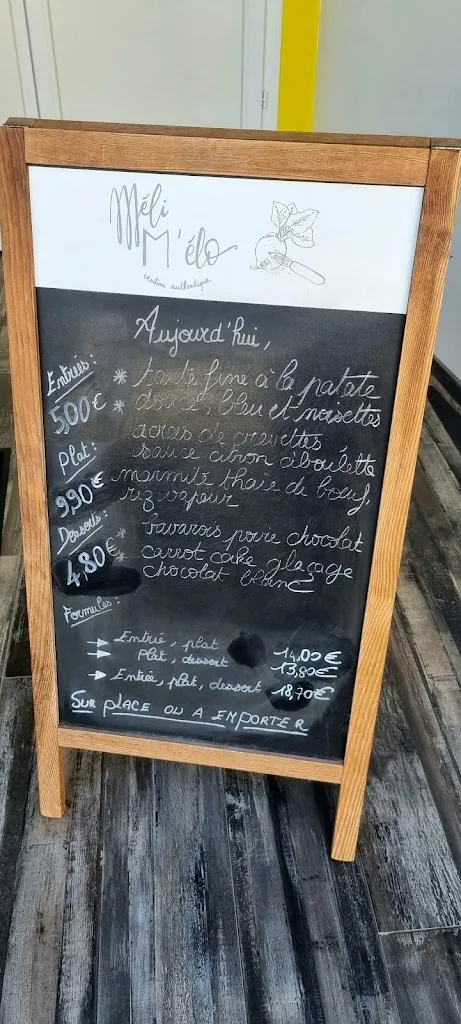 Méli
M'élo
cantine authentique
Aujourd'hui,
Entrées :
5,00€
* tarte fine à la patate
douce, bleu et noisettes
* acras de crevettes
sauce citron ciboulette
Plat :
9,90€
marmite thaïe de boeuf,
riz vapeur
Desserts :
4,80€
* bavarois poire chocolat
* carrot cake glaçage
chocolat blanc
Formules :
→ Entrée, plat 14,00€
→ Plat, dessert 13,80€
→ Entrée, plat, dessert 18,70€
SUR PLACE OU A EMPORTER